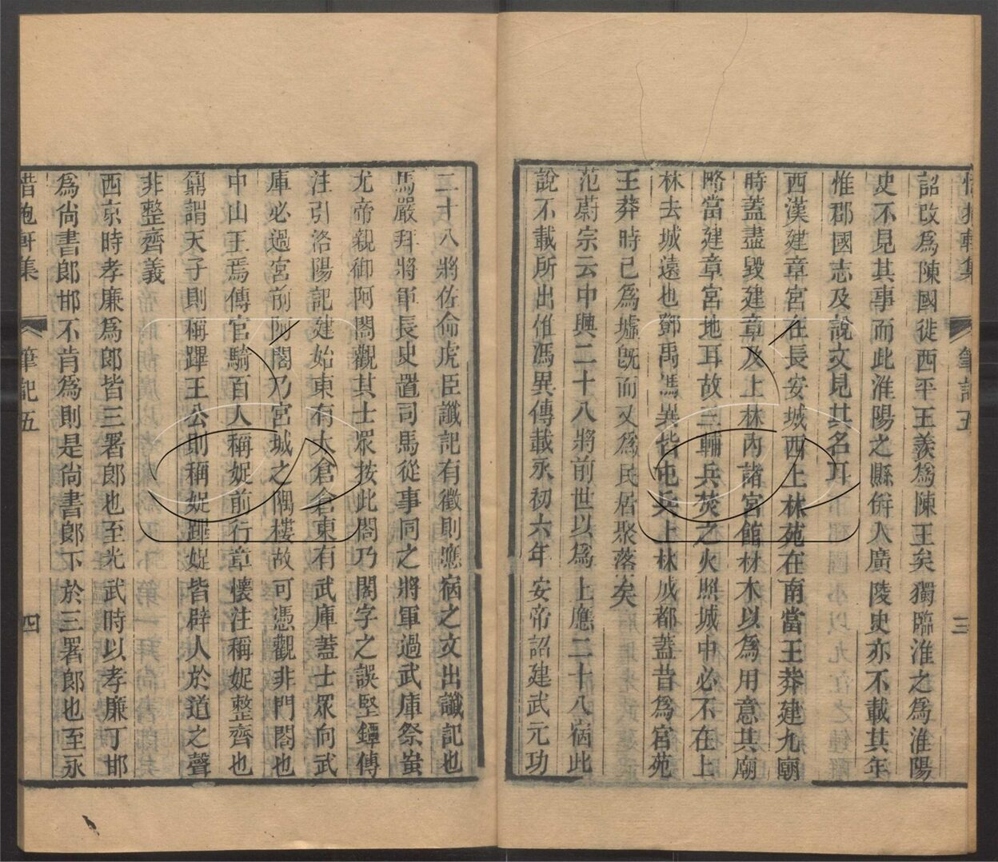 惜抱軒集 筆記五 三
詔改爲陳國徙西平王羨爲陳王矣獨臨淮之爲淮陽
史不見其事而此淮陽之縣併入廣陵史亦不載其年
惟郡國志及說文見其名耳
西漢建章宮在長安城西上林苑在南當王莽建九廟
時蓋盡毀建章及上林內諸宮館材木以爲用意其廟
略當建章宮地耳故三輔兵焚之火照城中必不在上
林去城遠也鄧禹馮異皆屯兵上林成都蓋昔爲宮苑
王莽時已爲墟旣而又爲民居聚落矣
范蔚宗云中興二十八將前世以爲上應二十八宿此
說不載所出惟馮異傳載永初六年安帝詔建武元功
二十八將佐命虎臣讖記有徵則應宿之文出讖記也
馬嚴拜將軍長史置司馬從事同之將軍過武庫祭蚩
尤帝親御阿閣觀其士眾按此閣乃閤字之誤堅鐔傳
注引洛陽記建始東有大倉倉東有武庫蓋士眾向武
庫必過宮前阿閣乃宮城之隅樓故可憑觀非門閤也
中山王焉傳官騎百人稱娖前行章懷注稱娖整齊也
鼐謂天子則稱蹕王公則稱娖蹕娖皆辟人於道之聲
非整齊義
西京時孝廉爲郎皆三署郎也至光武時以孝廉丁邯
爲尚書郎邯不肯爲則是尚書郎下於三署郎也至永
惜抱軒集 筆記五 四